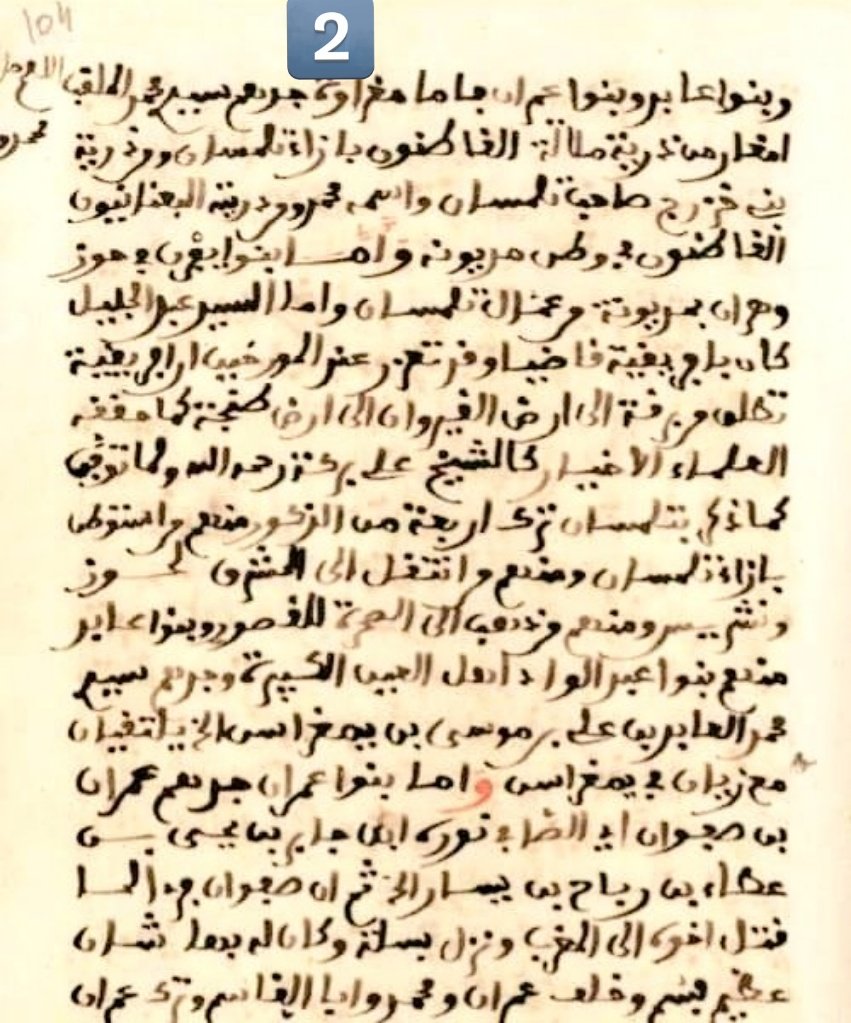 104
2
وبنوا عابر وبنوا عمران فاما مغراوة جدهم سيدي محمد الملقب
امغار من ذرية ملالة القاطنون بازاء تلمسان ومن ذرية
بني خزرج صاحب تلمسان واسمه محمد ومن ذريته
القاطنون في وطن مديونة واما بنوا يفرن في حوز
وهران بمديونة وعمالة تلمسان واما السيد عبد الجليل
كان بافريقية قاضيا وقد تقرر عند المورخين ان افريقية
تطلق من برقة الى ارض القيروان الى ارض طنجة كما حققه
العلماء الاخيار كالشيخ علي بركة رحمه الله ولما توفي
كما ذكر بتلمسان ترك اربعة من الذكور منهم من استوطن
بازاء تلمسان ومنهم من انتقل الى المشرق لحوز
ومنهم من ذهب الى الصحرة للقصور وبنوا عابر
منهم بنوا عبد الواد اهل العين الكبيرة وجدهم سيدي
محمد العابد بن علي بن موسى بن يغمراسن الخ يلتقيان
مع زيان في يغمراسن واما بنوا عمران جدهم عمران
بن صفوان ابن جابر بن يحيى بن
عطاء بن رباح بن يسار الخ ثم ان صفوان هذا لما
قتل اخوه الى المغرب ونزل بسلا وكان له بها شان
عظيم وخلف عمران ومحمد وابا القاسم وترك عمران
محمد